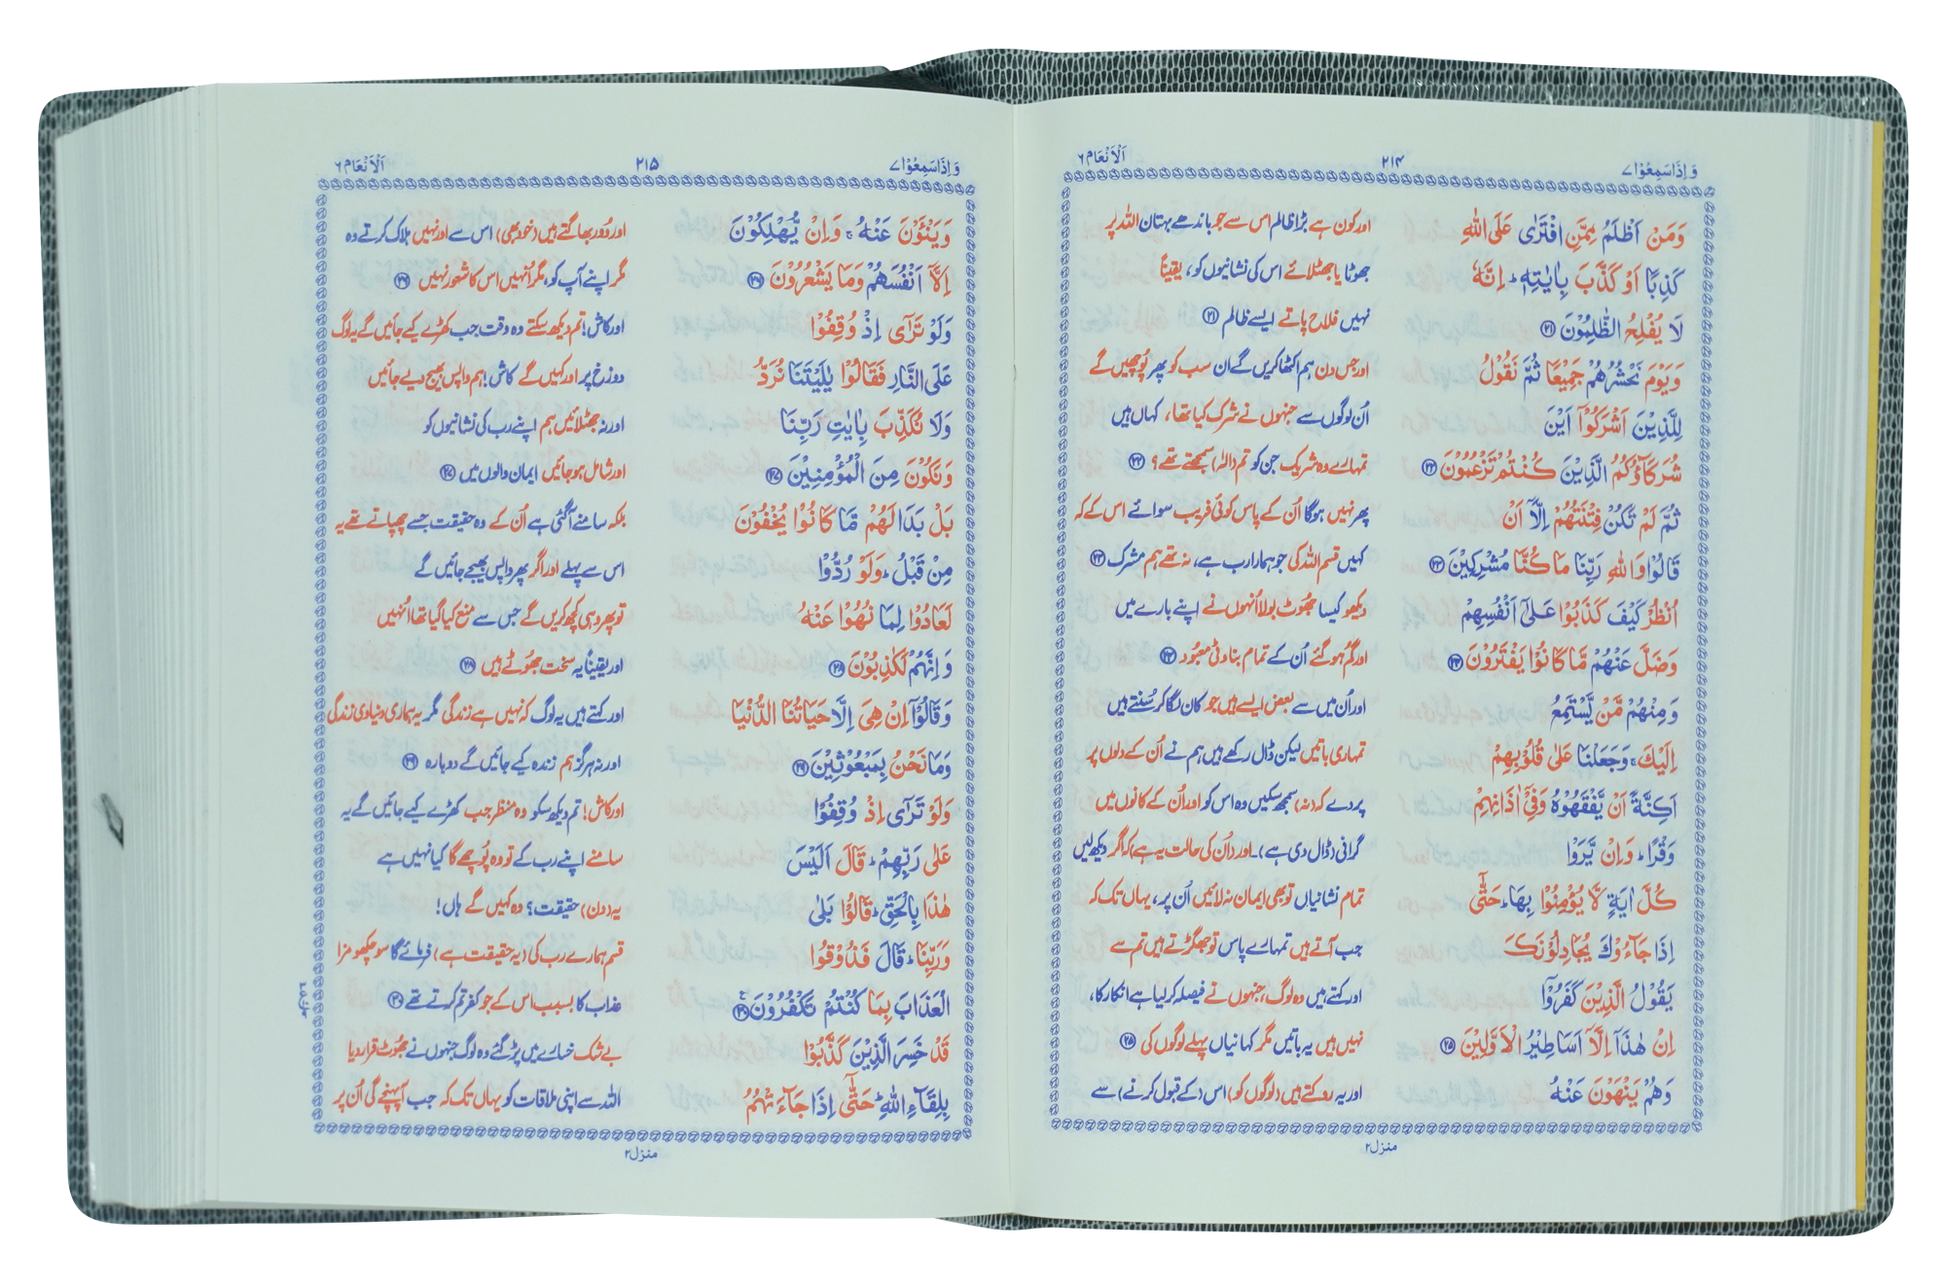 وَاِذَاسَمِعُوْا۷ ۲۱۴ اَلْاَنْعَام۶
وَمَنْ اَظْلَمُ مِمَّنِ افْتَرٰى عَلَى اللّٰهِ اور کون ہے بڑا ظالم اس سے جو باندھے بہتان اللہ پر
كَذِبًا اَوْ كَذَّبَ بِاٰيٰتِهٖ ؕ اِنَّهٗ جھوٹا یا جھٹلائے اس کی نشانیوں کو، یقیناً
لَا يُفْلِحُ الظّٰلِمُوْنَ ﴿۲۱﴾ نہیں فلاح پاتے ایسے ظالم ﴿۲۱﴾
وَيَوْمَ نَحْشُرُهُمْ جَمِيْعًا ثُمَّ نَقُوْلُ اور جس دن ہم اکٹھا کریں گے ان سب کو پھر پُوچھیں گے
لِلَّذِيْنَ اَشْرَكُوْۤا اَيْنَ اُن لوگوں سے جنہوں نے شرک کیا تھا، کہاں ہیں
شُرَكَآؤُكُمُ الَّذِيْنَ كُنْتُمْ تَزْعُمُوْنَ ﴿۲۲﴾ تمہارے وہ شریک جن کو تم (الٰہ) سمجھتے تھے؟ ﴿۲۲﴾
ثُمَّ لَمْ تَكُنْ فِتْنَتُهُمْ اِلَّاۤ اَنْ پھر نہیں ہوگا اُن کے پاس کوئی فریب سوائے اس کے کہ
قَالُوْا وَاللّٰهِ رَبِّنَا مَا كُنَّا مُشْرِكِيْنَ ﴿۲۳﴾ کہیں قسم اللہ کی جو ہمارا رب ہے، نہ تھے ہم مشرک ﴿۲۳﴾
اُنْظُرْ كَيْفَ كَذَبُوْا عَلٰٓى اَنْفُسِهِمْ دیکھو کیسا جھُوٹ بولا اُنہوں نے اپنے بارے میں
وَضَلَّ عَنْهُمْ مَّا كَانُوْا يَفْتَرُوْنَ ﴿۲۴﴾ اور گم ہو گئے اُن کے تمام بناوٹی معبُود ﴿۲۴﴾
وَمِنْهُمْ مَّنْ يَّسْتَمِعُ اور اُن میں سے بعض ایسے ہیں جو کان لگا کر سُنتے ہیں
اِلَيْكَ ۚ وَجَعَلْنَا عَلٰى قُلُوْبِهِمْ تمہاری باتیں لیکن ڈال رکھے ہیں ہم نے اُن کے دلوں پر
اَكِنَّةً اَنْ يَّفْقَهُوْهُ وَفِيْۤ اٰذَانِهِمْ پردے کہ (نہ) سمجھ سکیں وہ اس کو اور اُن کے کانوں میں
وَقْرًا ؕ وَاِنْ يَّرَوْا گرانی (ڈال دی ہے)۔ اور (اُن کی حالت یہ ہے) کہ اگر دیکھ لیں
كُلَّ اٰيَةٍ لَّا يُؤْمِنُوْا بِهَا ؕ حَتّٰۤى تمام نشانیاں تو بھی ایمان نہ لائیں اُن پر، یہاں تک کہ
اِذَا جَآءُوْكَ يُجَادِلُوْنَكَ جب آتے ہیں تمہارے پاس تو جھگڑتے ہیں تم سے
يَقُوْلُ الَّذِيْنَ كَفَرُوْۤا اور کہتے ہیں وہ لوگ، جنہوں نے فیصلہ کر لیا ہے انکار کا،
اِنْ هٰذَاۤ اِلَّاۤ اَسَاطِيْرُ الْاَوَّلِيْنَ ﴿۲۵﴾ نہیں ہیں یہ باتیں مگر کہانیاں پہلے لوگوں کی ﴿۲۵﴾
وَهُمْ يَنْهَوْنَ عَنْهُ اور یہ روکتے ہیں (لوگوں کو) اس (کے قبول کرنے) سے
منزل۲
وَاِذَاسَمِعُوْا۷ ۲۱۵ اَلْاَنْعَام۶
وَيَنْـَٔوْنَ عَنْهُ ۚ وَاِنْ يُّهْلِكُوْنَ اور دُور بھاگتے ہیں (خود بھی) اس سے اور نہیں ہلاک کرتے وہ
اِلَّاۤ اَنْفُسَهُمْ وَمَا يَشْعُرُوْنَ ﴿۲۶﴾ مگر اپنے آپ کو، مگر اُنہیں اس کا شعور نہیں ﴿۲۶﴾
وَلَوْ تَرٰۤى اِذْ وُقِفُوْا اور کاش! تم دیکھ سکتے وہ وقت جب کھڑے کیے جائیں گے یہ لوگ
عَلَى النَّارِ فَقَالُوْا يٰلَيْتَنَا نُرَدُّ دوزخ پر اور کہیں گے کاش! ہم واپس بھیج دیے جائیں
وَلَا نُكَذِّبَ بِاٰيٰتِ رَبِّنَا اور نہ جھٹلائیں ہم اپنے رب کی نشانیوں کو
وَنَكُوْنَ مِنَ الْمُؤْمِنِيْنَ ﴿۲۷﴾ اور شامل ہو جائیں ایمان والوں میں ﴿۲۷﴾
بَلْ بَدَا لَهُمْ مَّا كَانُوْا يُخْفُوْنَ بلکہ سامنے آ گئی ہے اُن کے وہ حقیقت جسے چھپاتے تھے یہ
مِنْ قَبْلُ ؕ وَلَوْ رُدُّوْا اس سے پہلے اور اگر پھر واپس بھیجے جائیں گے
لَعَادُوْا لِمَا نُهُوْا عَنْهُ تو پھر وہی کچھ کریں گے جس سے منع کیا گیا تھا اُنہیں
وَاِنَّهُمْ لَكٰذِبُوْنَ ﴿۲۸﴾ اور یقیناً یہ سخت جھُوٹے ہیں ﴿۲۸﴾
وَقَالُوْۤا اِنْ هِىَ اِلَّا حَيَاتُنَا الدُّنْيَا اور کہتے ہیں یہ لوگ کہ نہیں ہے زندگی مگر یہ ہماری دنیاوی زندگی
وَمَا نَحْنُ بِمَبْعُوْثِيْنَ ﴿۲۹﴾ اور نہ ہرگز ہم زندہ کیے جائیں گے دوبارہ ﴿۲۹﴾
وَلَوْ تَرٰۤى اِذْ وُقِفُوْا اور کاش! تم دیکھ سکو وہ منظر جب کھڑے کیے جائیں گے یہ
عَلٰى رَبِّهِمْ ؕ قَالَ اَلَيْسَ سامنے اپنے رب کے تو وہ پُوچھے گا کیا نہیں ہے
هٰذَا بِالْحَقِّ ؕ قَالُوْا بَلٰى یہ (دن) حقیقت؟ وہ کہیں گے ہاں!
وَرَبِّنَا ؕ قَالَ فَذُوْقُوا قسم ہمارے رب کی (یہ حقیقت ہے) فرمائے گا سو چکھو مزا
الْعَذَابَ بِمَا كُنْتُمْ تَكْفُرُوْنَ ﴿۳۰﴾ عذاب کا بسبب اس کے جو کفر تم کرتے تھے ﴿۳۰﴾
قَدْ خَسِرَ الَّذِيْنَ كَذَّبُوْا بے شک خسارے میں پڑ گئے وہ لوگ جنہوں نے جھوٹ قرار دیا
بِلِقَآءِ اللّٰهِ ؕ حَتّٰۤى اِذَا جَآءَتْهُمُ اللہ سے اپنی ملاقات کو یہاں تک کہ جب آ پہنچے گی اُن پر
منزل۲